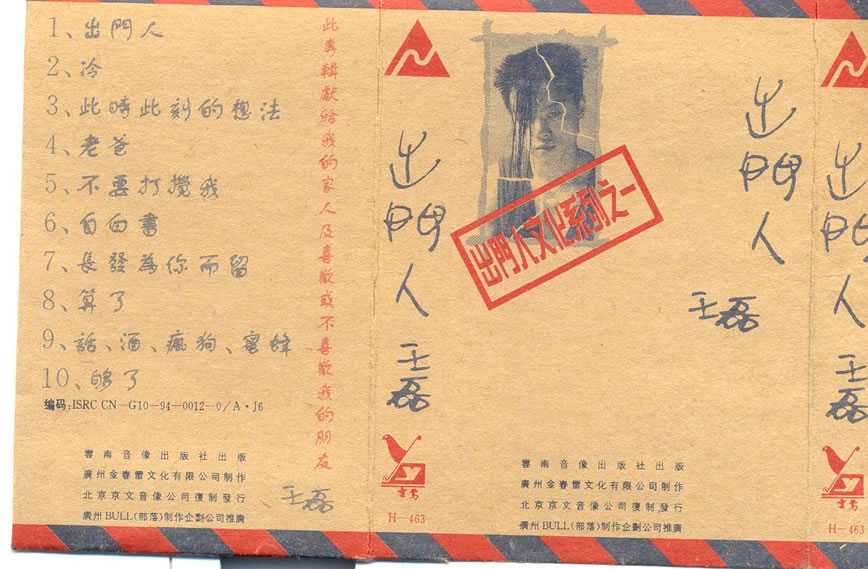 1、出門人
2、冷
3、此時此刻的想法
4、老爸
5、不要打攪我
6、自白書
7、長發為你而留
8、算了
9、話、酒、瘋狗、蜜蜂
10、够了
编码:ISRC CN-G10-94-0012-0/A·J6
雲南音像出版社出版
廣州金春雷文化有限公司制作
北京京文音像公司復制發行
廣州BULL(部落)制作企劃公司推廣
王磊
此專輯獻給我的家人及喜歡或不喜歡我的朋友
出門人
王磊
H-463
出門人文化系列之一
出門人
王磊
雲南音像出版社出版
廣州金春雷文化有限公司制作
北京京文音像公司復制發行
廣州BULL(部落)制作企劃公司推廣
出門人
王磊
H-463